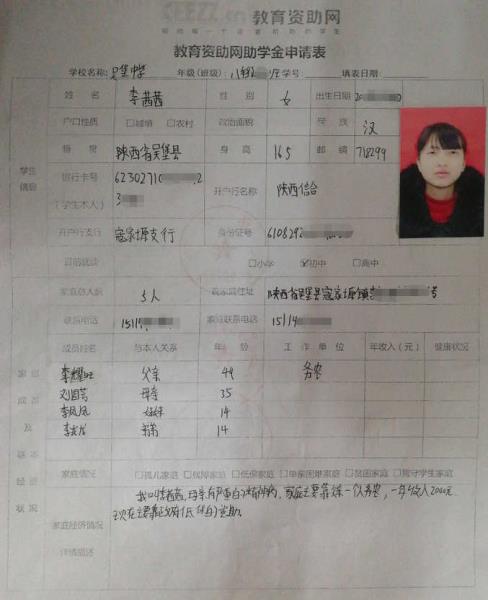 JEEZZ.cn 教育资助网
教育资助网助学金申请表
学校名称: 吴堡中学 年级(班级): 八 学号 填表日期
姓 名 李茜茜 性 别 女 出生日期 20
户口性质 □城镇 □农村 政治面貌 民 族 汉
籍 贯 陕西省吴堡县 身 高 165 邮 编 718299
学生
信息
银行卡号 62302710 2
(学生本人) 3
开户行名称 陕西信合
开户行支行 寇家塬支行 身份证号 610829
目前就读 □小学 ☑初中 □高中
家庭总人数 5人 现家庭住址 陕西省吴堡县寇家塬镇 号
联系电话 1511 家庭联系电话 15114
成员姓名 与本人关系 年 龄 工 作 单 位 年收入(元) 健康状况
李 旺 父亲 44 务农
刘 母亲 35
李凤凤 妹妹 14
李 弟弟 14
家庭成员及基本经济状况
家庭情况 □孤儿家庭 □残障家庭 □低保家庭 □单亲困难家庭 □贫困家庭 □留守学生家庭
家庭经济情况
详情描述
我叫李茜茜,母亲有严重的精神病,家庭主要靠爸一个人务农,一年收入2000元
现在主要靠政府低保的资助。